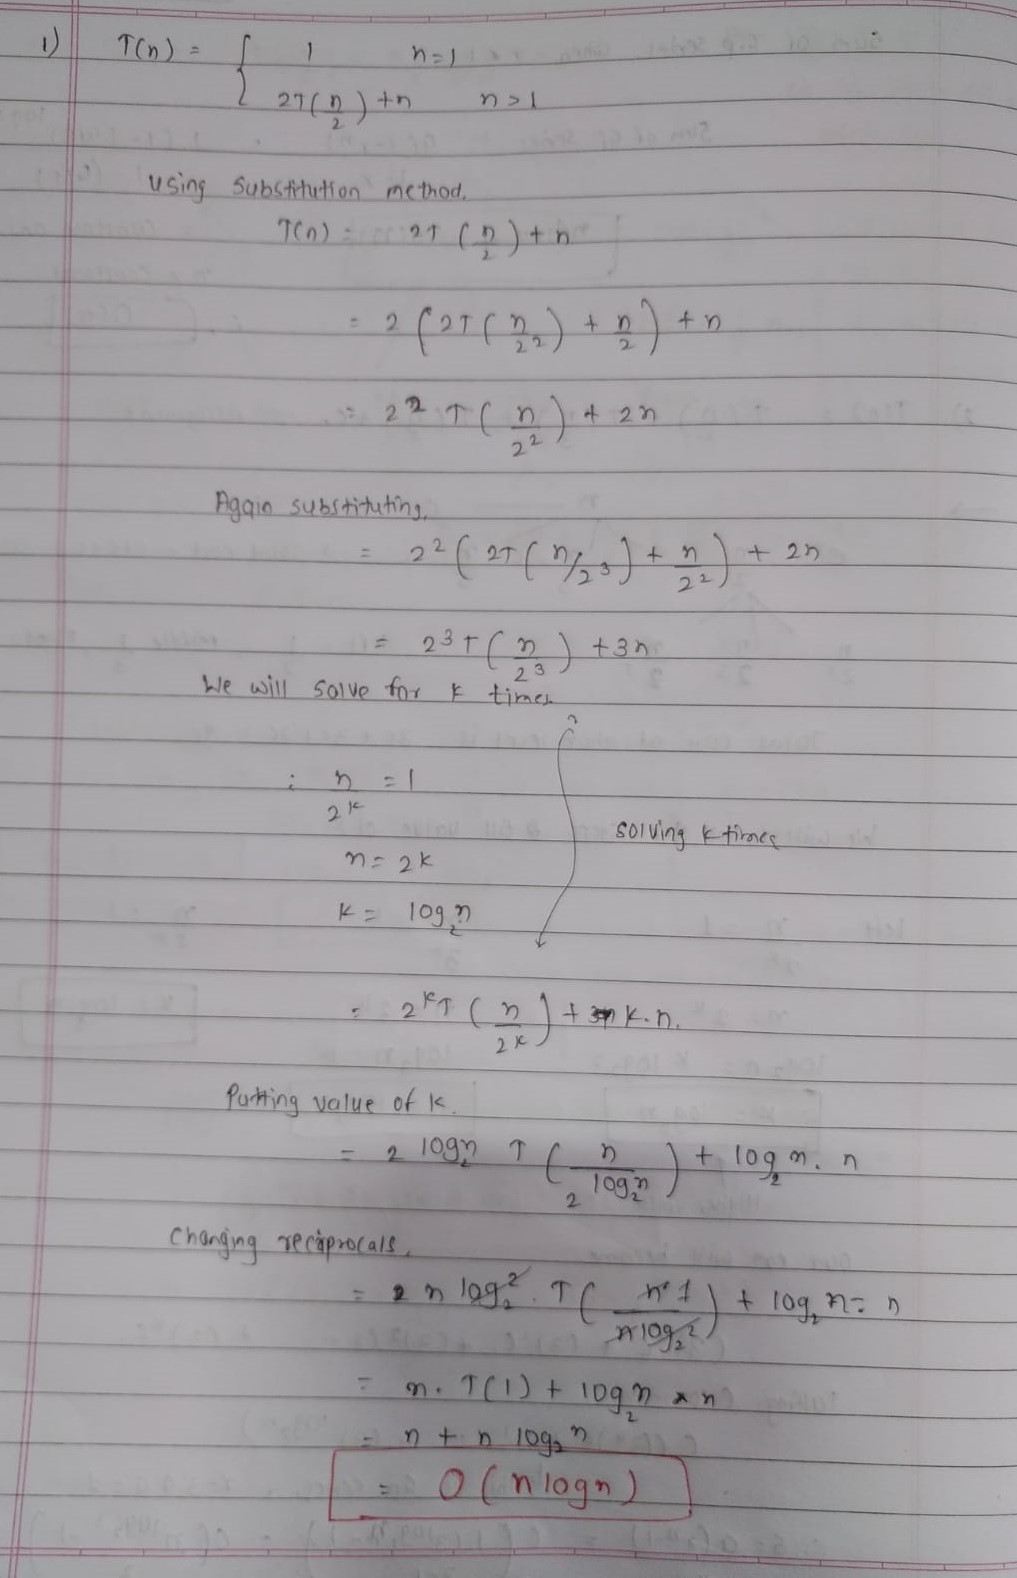 1) T(n) = { 1 n=1
2T(n/2) + n n>1
Using Substitution method.
T(n) = 2T (n/2) + n
= 2 (2T (n/2²) + n/2) + n
= 2² T (n/2²) + 2n
Again substituting,
= 2² (2T (n/2³) + n/2²) + 2n
= 2³T (n/2³) + 3n
We will solve for k times
: n/2^k = 1
solving k times
n = 2^k
k = log₂n
= 2^k T (n/2^k) + k.n.
Putting value of k.
= 2^log₂n T (n/2^log₂n) + log₂n. n
Changing reciprocals,
= n^log₂2 . T (n 1/n^log₂2) + log₂ n = n
= n. T(1) + log₂n * n
= n + n log₂n
= O (n logn)